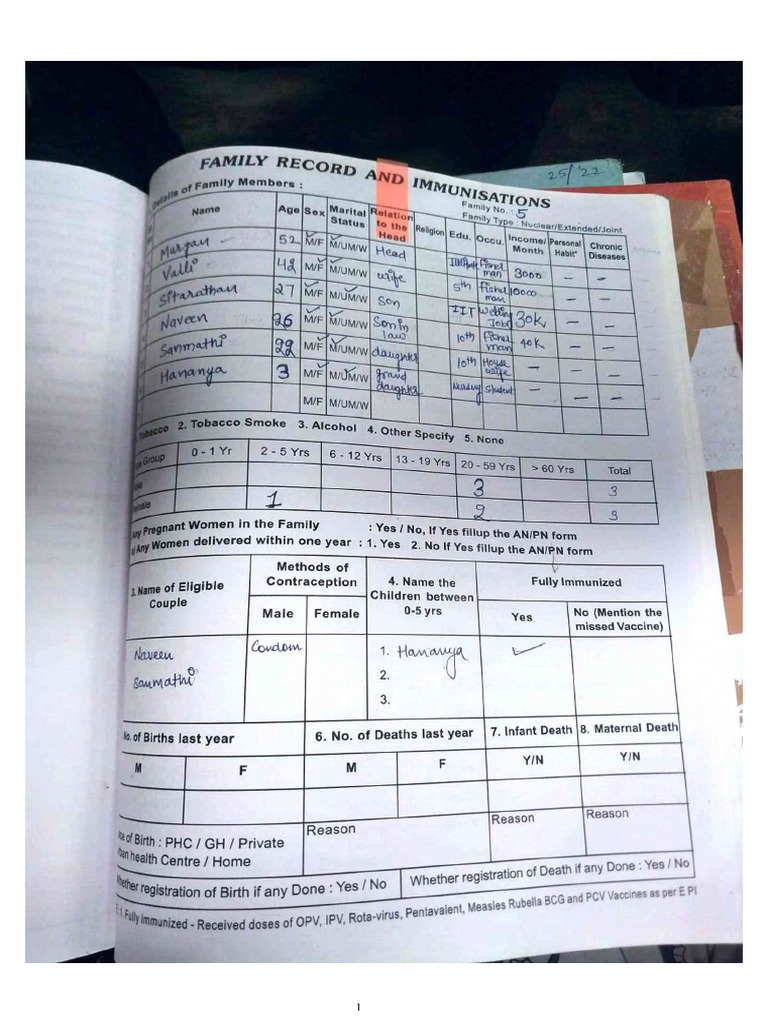 25/'22
FAMILY RECORD AND IMMUNISATIONS
Family No. : 5
Details of Family Members :
Family Type : Nuclear/Extended/Joint
Name Age Sex Marital Status Relation to the Head Religion Edu. Occu. Income/ Month Personal Habit* Chronic Diseases
Murgan 52 M/F M/UM/W Head fisher man 3000 - -
Valli 42 M/F M/UM/W wife 5th fisher man 10000 - -
Sitarathan 27 M/F M/UM/W Son IIT Welding Job 30K - -
Naveen 26 M/F M/UM/W Son in law 10th fisher man 40K - -
Sanmathi 22 M/F M/UM/W daughter 10th House wife - - -
Hananya 3 M/F M/UM/W grand daughter Student - -
M/F M/UM/W
Tobacco 2. Tobacco Smoke 3. Alcohol 4. Other Specify 5. None
Group 0 - 1 Yr 2 - 5 Yrs 6 - 12 Yrs 13 - 19 Yrs 20 - 59 Yrs > 60 Yrs Total
3 3
1 2 3
Any Pregnant Women in the Family : Yes / No, If Yes fillup the AN/PN form
a) Any Women delivered within one year : 1. Yes 2. No If Yes fillup the AN/PN form
3. Name of Eligible Couple Methods of Contraception 4. Name the Children between 0-5 yrs Fully Immunized
Male Female Yes No (Mention the missed Vaccine)
Naveen Condom 1. Hananya
Sanmathi 2.
3.
No. of Births last year 6. No. of Deaths last year 7. Infant Death 8. Maternal Death
M F M F Y/N Y/N
of Birth : PHC / GH / Private Reason Reason Reason
health Centre / Home
Whether registration of Birth if any Done : Yes / No Whether registration of Death if any Done : Yes / No
1. Fully Immunized - Received doses of OPV, IPV, Rota-virus, Pentavalent, Measles Rubella BCG and PCV Vaccines as per E PI
1